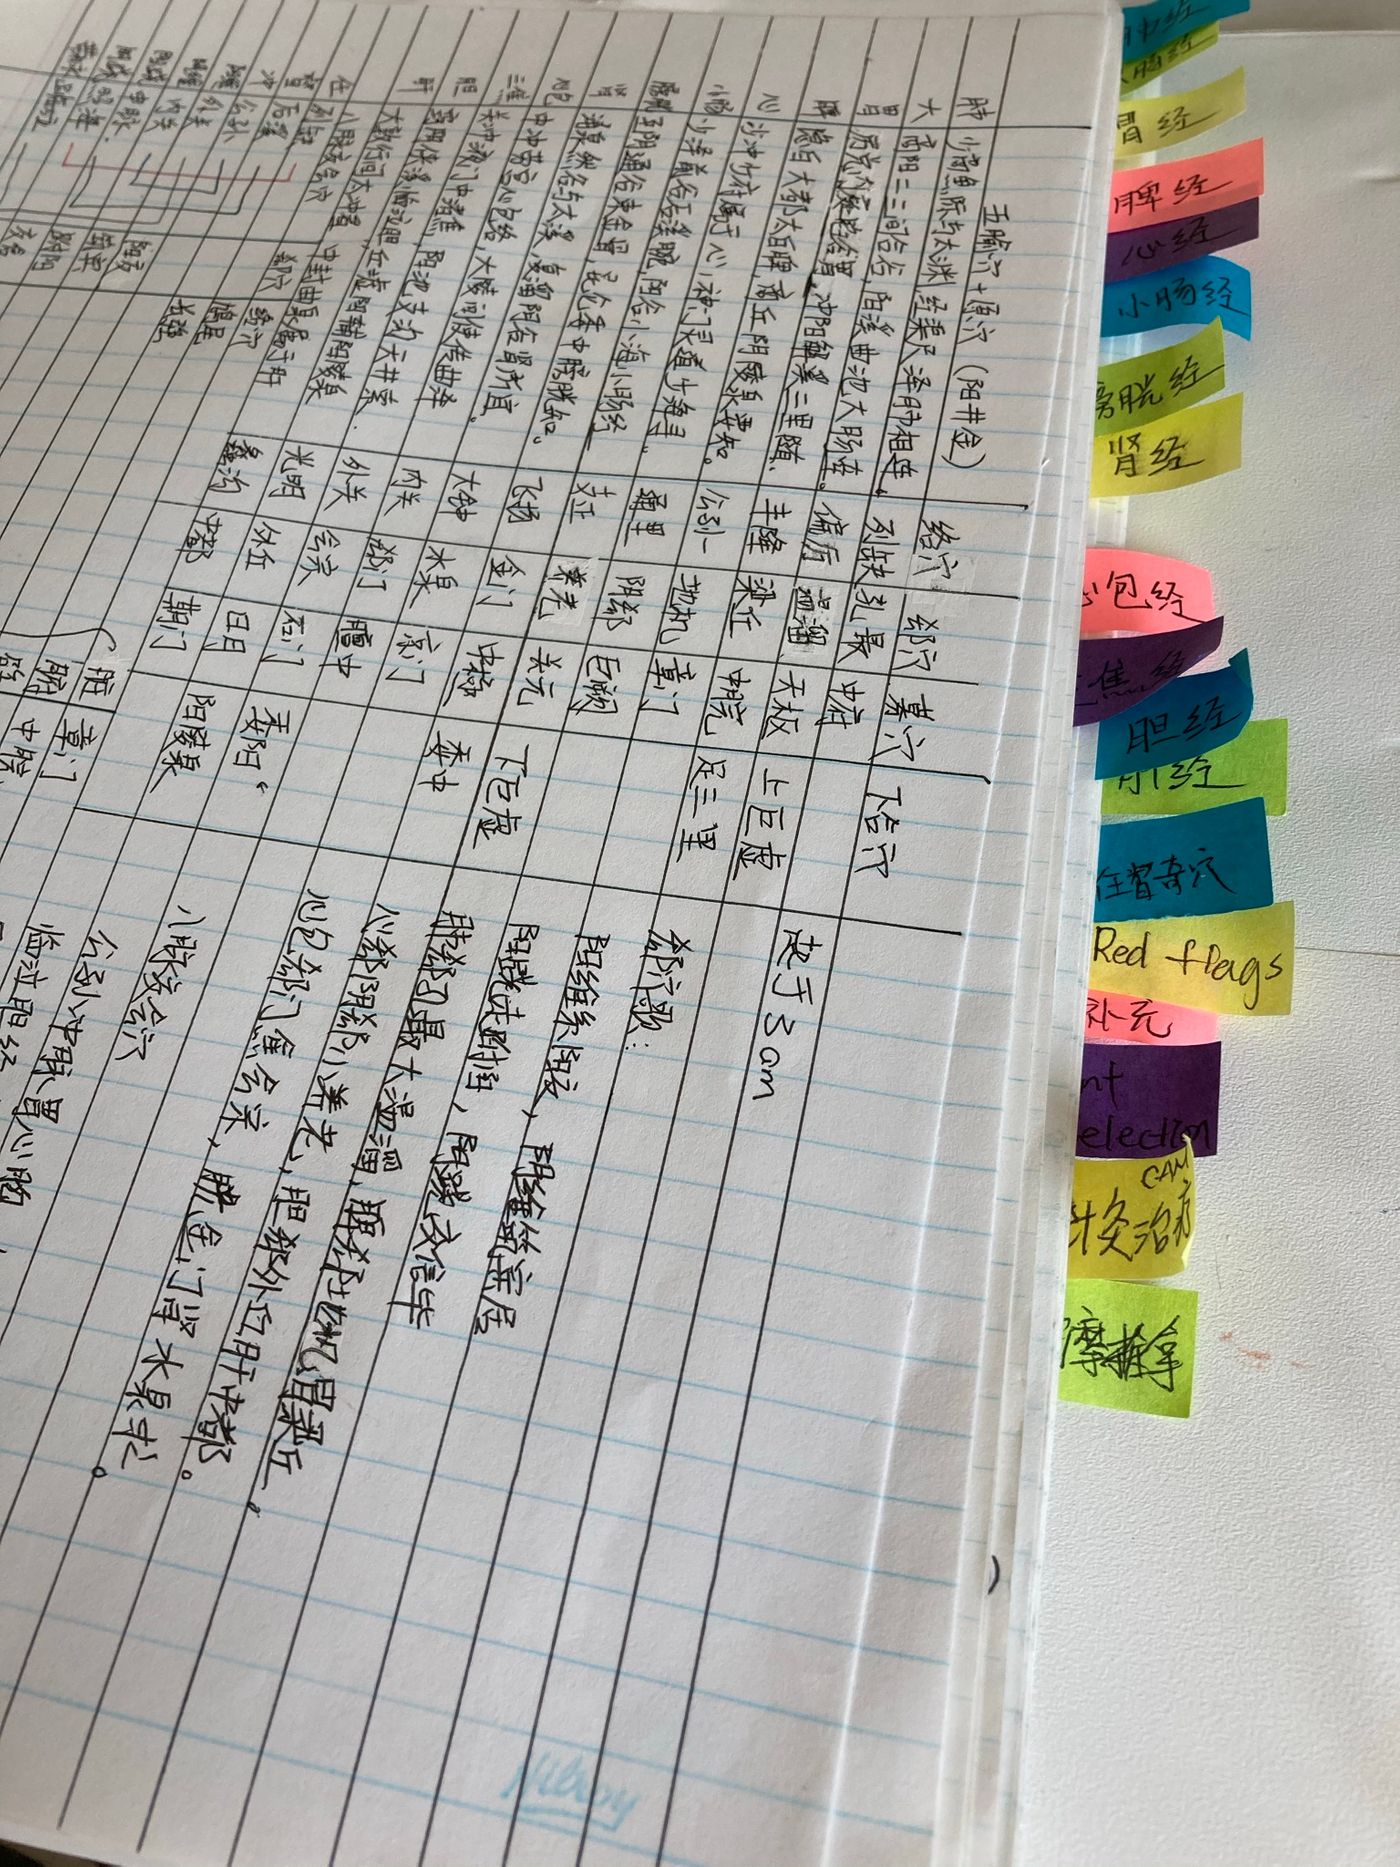 五腧穴+原穴 (阳井金) 络穴 郄穴 募穴 下合穴
肺 少商鱼际与太渊,经渠尺泽肺相连。 列缺 孔最 中府
大 商阳二三间合谷,阳溪曲池大肠连。 偏历 温溜 天枢 上巨虚
胃 冲阳解溪三里随. 丰隆 梁丘 中脘 足三里
脾 隐白大都太白脾,商丘阴陵泉要知。 公孙 地机 章门
心 少冲少府属于心,神门灵道少海寻。 通里 阴郄 巨阙
小肠 少泽前谷后溪腕,阳谷小海小肠经 支正 养老 关元 下巨虚
膀胱 至阴通谷束金骨,昆仑委中膀胱知。 飞扬 金门 中极 委中
肾 涌泉然谷与太溪,复溜阴谷肾所宜。 大钟 水泉 京门
心包 中冲劳宫心包络,大陵间使传曲泽 内关 郄门 膻中
三焦 关冲液门中渚焦,阳池支沟天井索. 外关 会宗 石门 委阳
胆 窍阴侠溪临泣胆,丘墟阳辅阳陵泉 光明 外丘 日月 阳陵泉
肝 大敦行间太冲看,中封曲泉属于肝 蠡沟 中都 期门
八脉交会穴 郄穴 络穴
任 列缺
督 后溪
冲 公孙
外关
内关
申脉
照海
阳交
筑宾
跗阳
交信
鸠尾
长强
脏 章门
腑 中脘
起于3am
郄穴歌:
阳维系阳交,阴维筑宾居
阳跷走跗阳,阴跷交信毕
肺郄孔最大温溜,脾郄地机胃梁丘,
心郄阴郄小养老,胆郄外丘肝中都。
心包郄门焦会宗,膀金门肾水泉求。
八脉交会穴
公孙冲脉胃心胸
肺经
大肠经
胃经
脾经
心经
小肠经
膀胱经
肾经
心包经
三焦经
胆经
肝经
任督奇穴
Red flags
补充
nt
election
CAM
针灸治疗
摩推拿